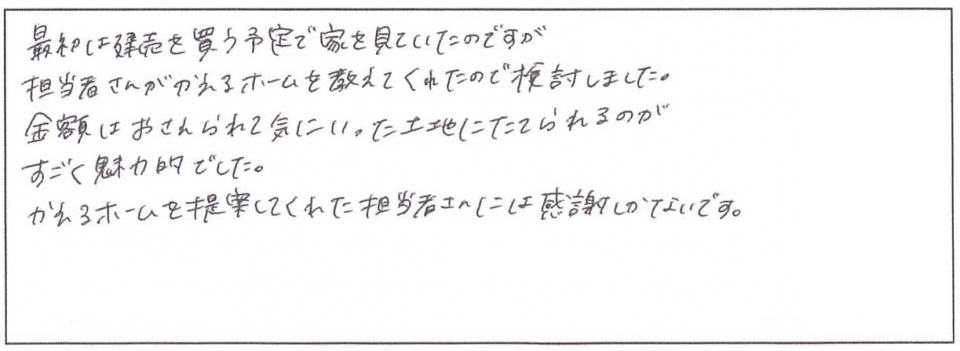 最初は建売を買う予定で家を見ていたのですが
担当者さんがかえるホームを教えてくれたので検討しました。
金額はおさえられて気にいった土地にたてられるのが
すごく魅力的でした。
かえるホームを提案してくれた担当者さんには感謝しかないです。